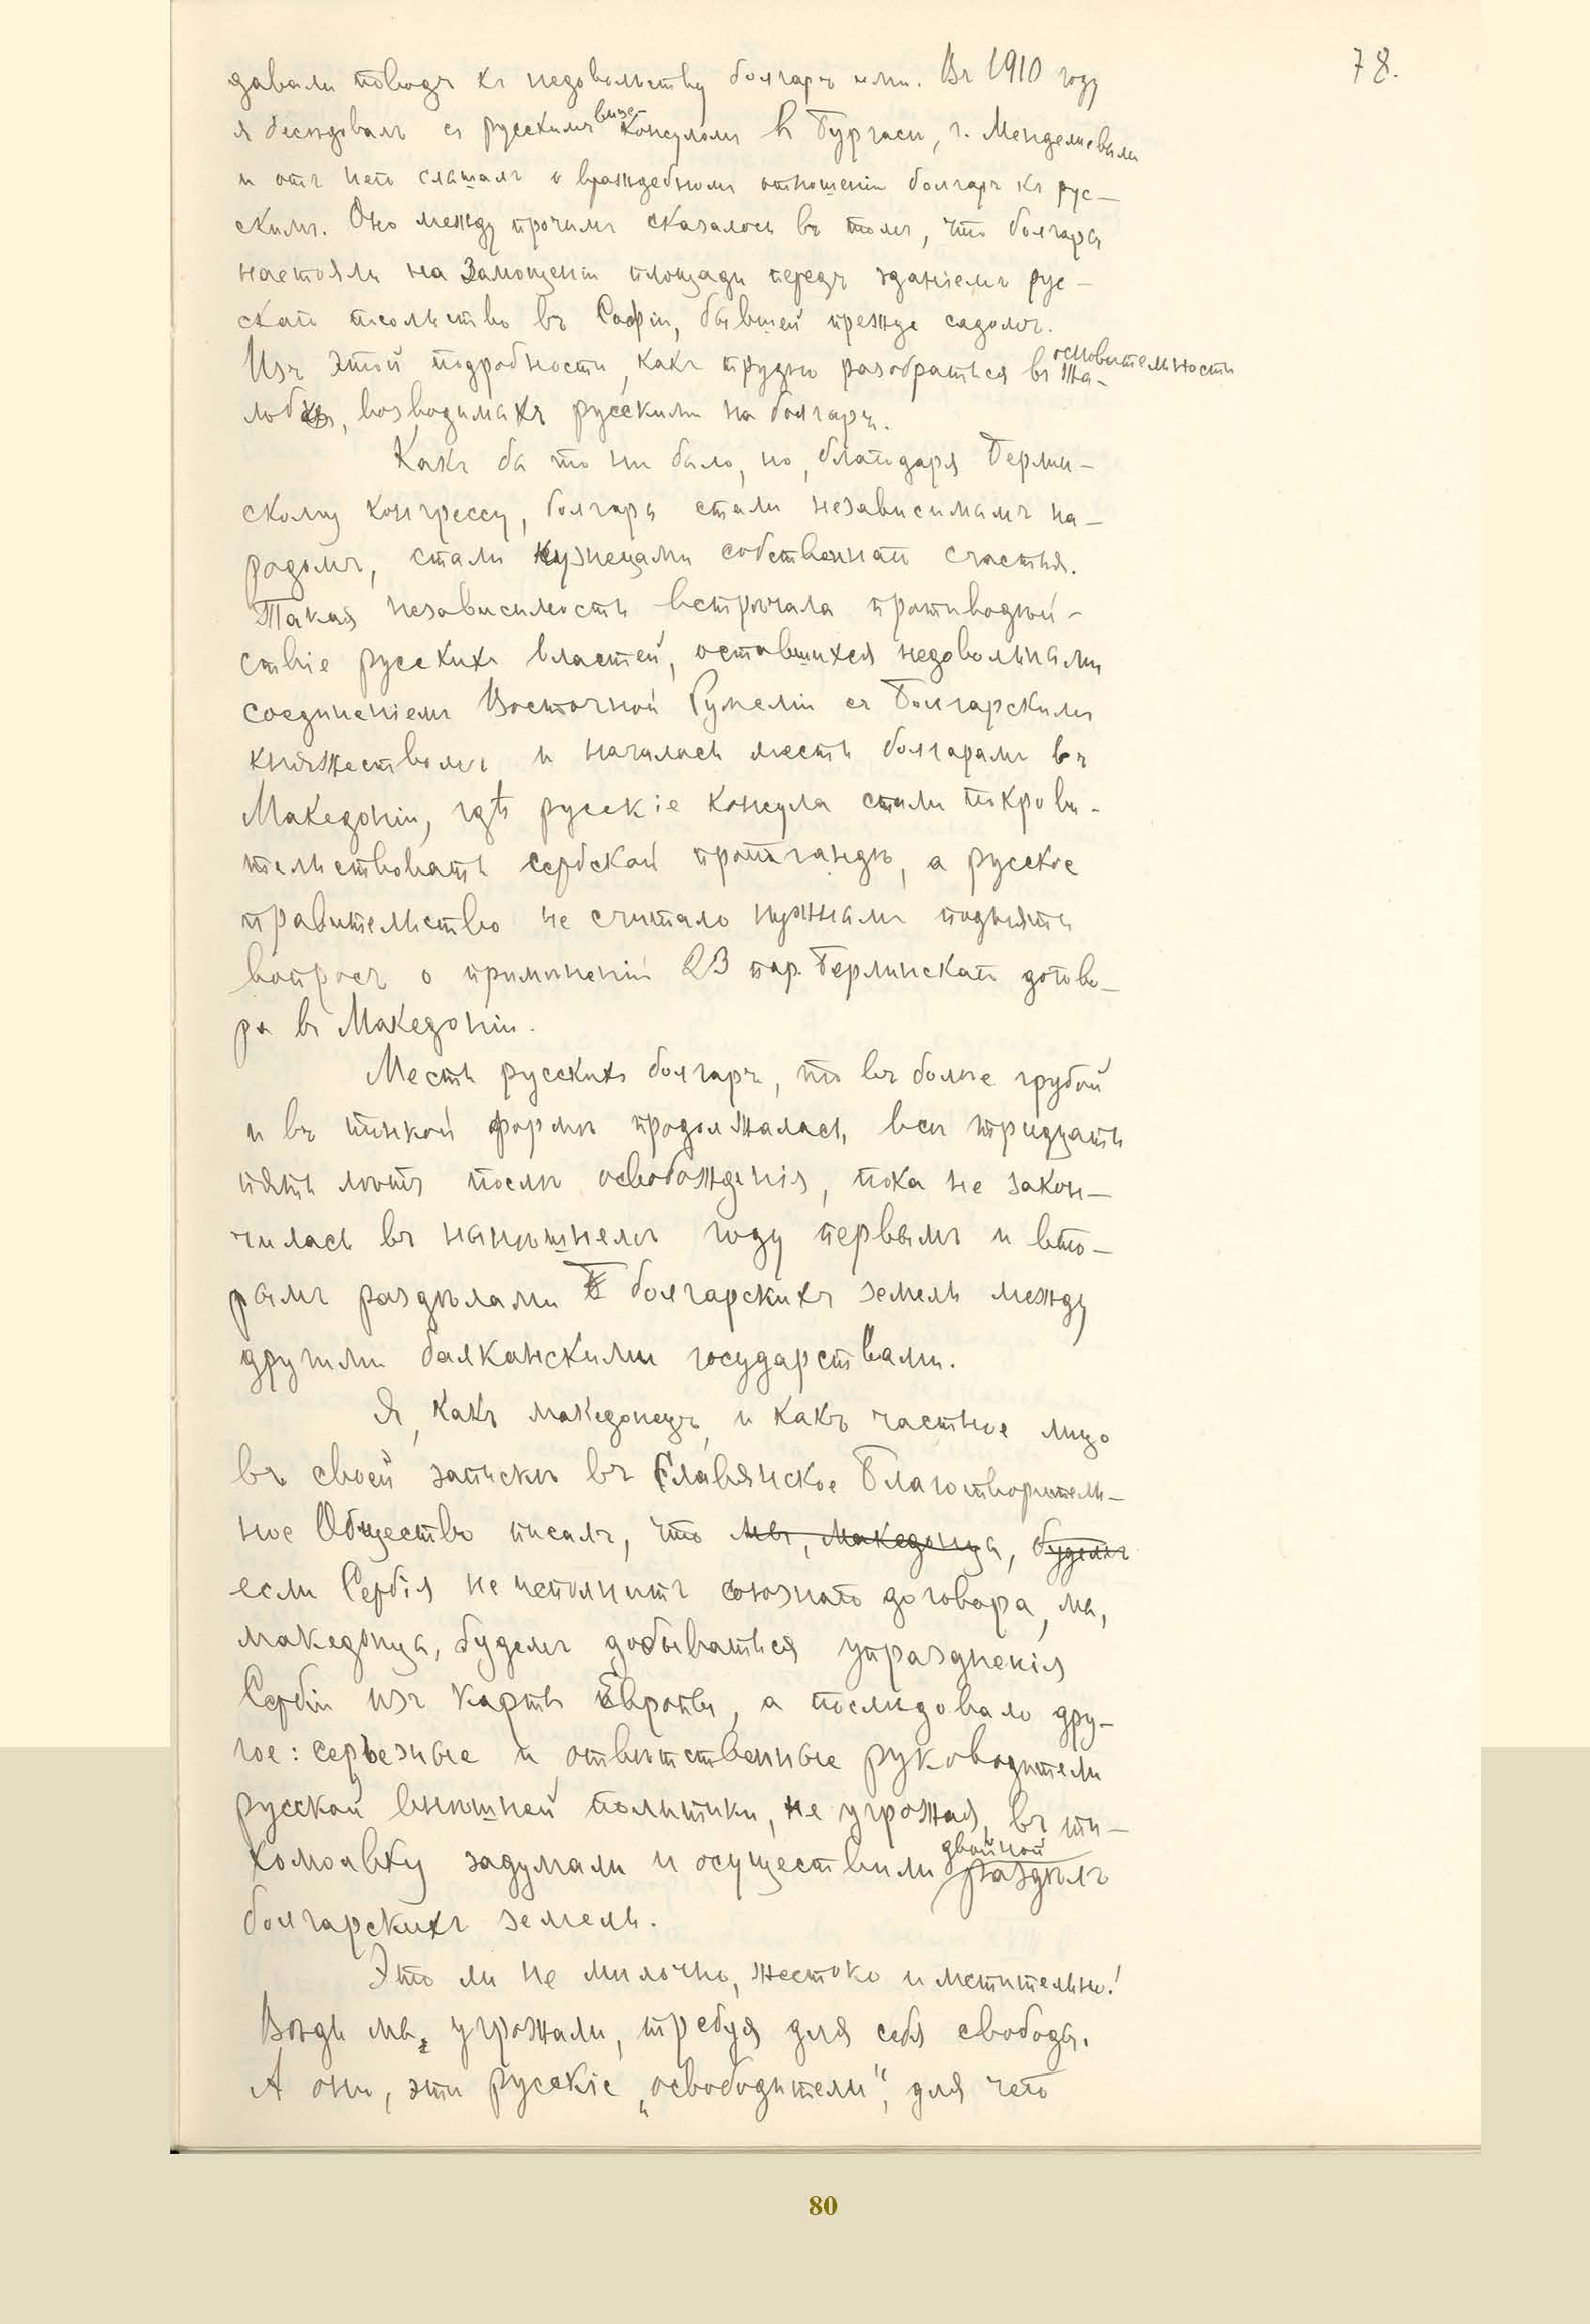 78.
давали поводъ къ недовольству болгаръ ими. Въ 1910 году
я бесѣдовалъ съ русскимъ вице-консуломъ въ Бургасѣ, г. Менделѣевымъ
и отъ него слышалъ о враждебномъ отношеніи болгаръ къ рус-
скимъ. Оно между прочимъ сказалось въ томъ, что болгары
настояли на замощеніи площади передъ зданіемъ рус-
скаго посольство въ Софіи, бывшей прежде садомъ.
Изъ этой подробности, какъ трудно разобраться въ основательности жа-
лобъ, возводимыхъ русскими на болгаръ.
Какъ бы то ни было, но, благодаря Берлин-
скому конгрессу, болгары стали независимымъ на-
родомъ, стали кузнецами собственнаго счастья.
Такая независимость встрѣчала противодѣй-
ствіе русскихъ властей, оставшихся недовольными
соединеніемъ Восточной Румеліи съ Болгарскимъ
княжествомъ, и началась месть болгарамъ въ
Македоніи, гдѣ русскіе консула стали покрови-
тельствовать сербской пропагандѣ, а русское
правительство не считало нужнымъ поднять
вопросъ о примѣненіи 23 пар. Берлинскаго догово-
ра въ Македоніи.
Месть русскихъ болгарамъ, то въ болѣе грубой
и въ тонкой формѣ продолжалась, всѣ тридцать
пять лѣтъ послѣ освобожденія, пока не закон-
чилась въ нынѣшнемъ году первымъ и вто-
рымъ раздѣлами болгарскихъ земель между
другими балканскими государствами.
Я, какъ македонецъ, и какъ частное лицо
въ своей запискѣ въ Славянское Благотворитель-
ное Общество писалъ, что мы, македонцы, будемъ
если Сербія не исполнитъ союзнаго договора, мы,
македонцы, будемъ добываться упраздненія
Сербіи изъ карты Европы, а послѣдовало дру-
гое: серьезные и отвѣтственные руководители
русской внѣшней политики, не угрожая, въ ти-
хомолвку задумали и осуществили двойной раздѣлъ
болгарскихъ земель.
Это ли не мѣлочно, жестоко и мстительно!
Вѣдь мы угрожали, требуя для себя свободы.
А они, эти русскіе „освободители“, для чего
80